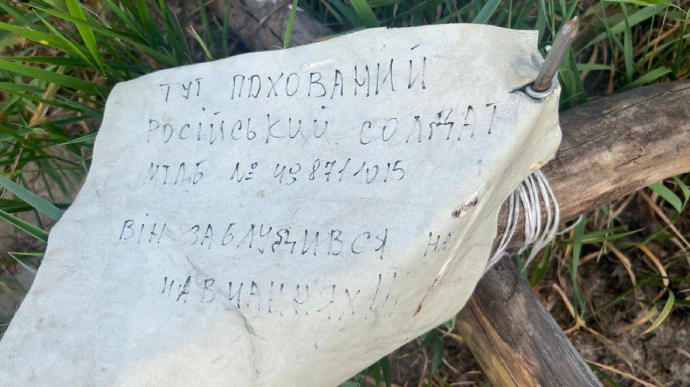 ТУТ ПОХОВАНИЙ
РОСІЙСЬКИЙ СОЛДАТ
МТЛБ № 498711015
ВІН ЗАБЛУДИВСЯ НА
НАВЧАННЯХ!!!